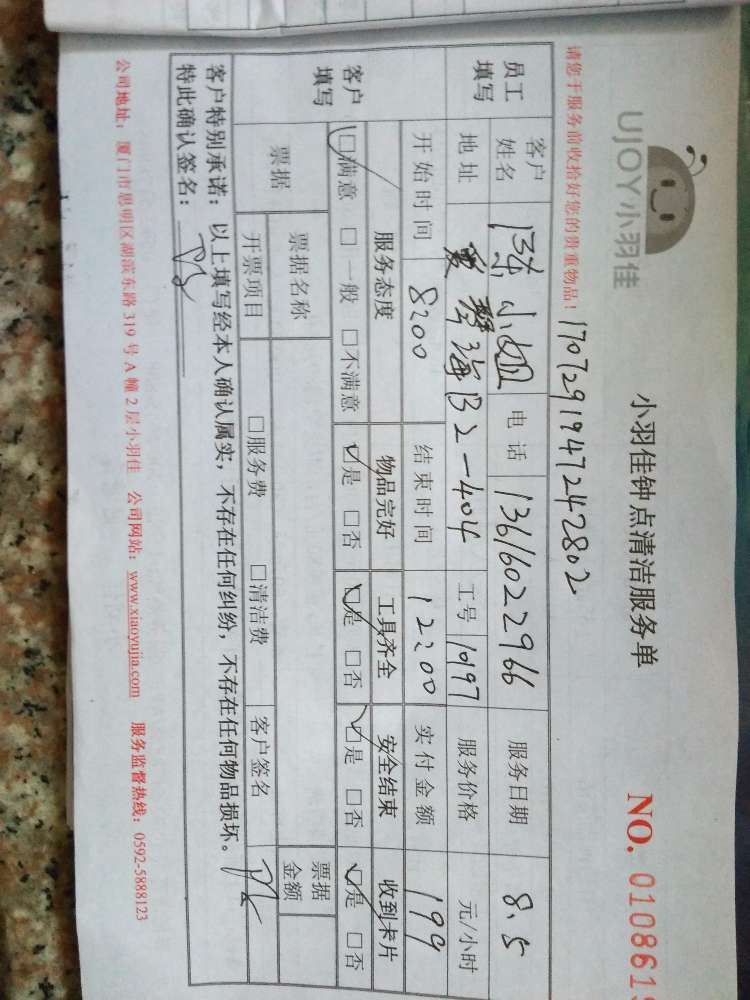 UJOY小羽佳
小羽佳钟点清洁服务单
NO. 0108619
请您于服务前收拾好您的贵重物品! 1707291947242802
员工填写 客户姓名 小姐 电话 13616022966 服务日期 8.5
地址 海B2-404 工号 1097 服务价格 元/小时
开始时间 8:00 结束时间 12:00 实付金额 199
客户填写 服务态度 物品完好 工具齐全 安全结束 收到卡片
☑满意 □一般 □不满意 ☑是 □否 ☑是 □否 ☑是 □否 ☑是 □否
票据 票据名称 票据金额
开票项目 □服务费 □清洁费 客户签名
客户特别承诺:以上填写经本人确认属实,不存在任何纠纷,不存在任何物品损坏。
特此确认签名:
公司地址:厦门市思明区湖滨东路319号A幢2层小羽佳 公司网站:www.xiaoyujia.com 服务监督热线:0592-5888123